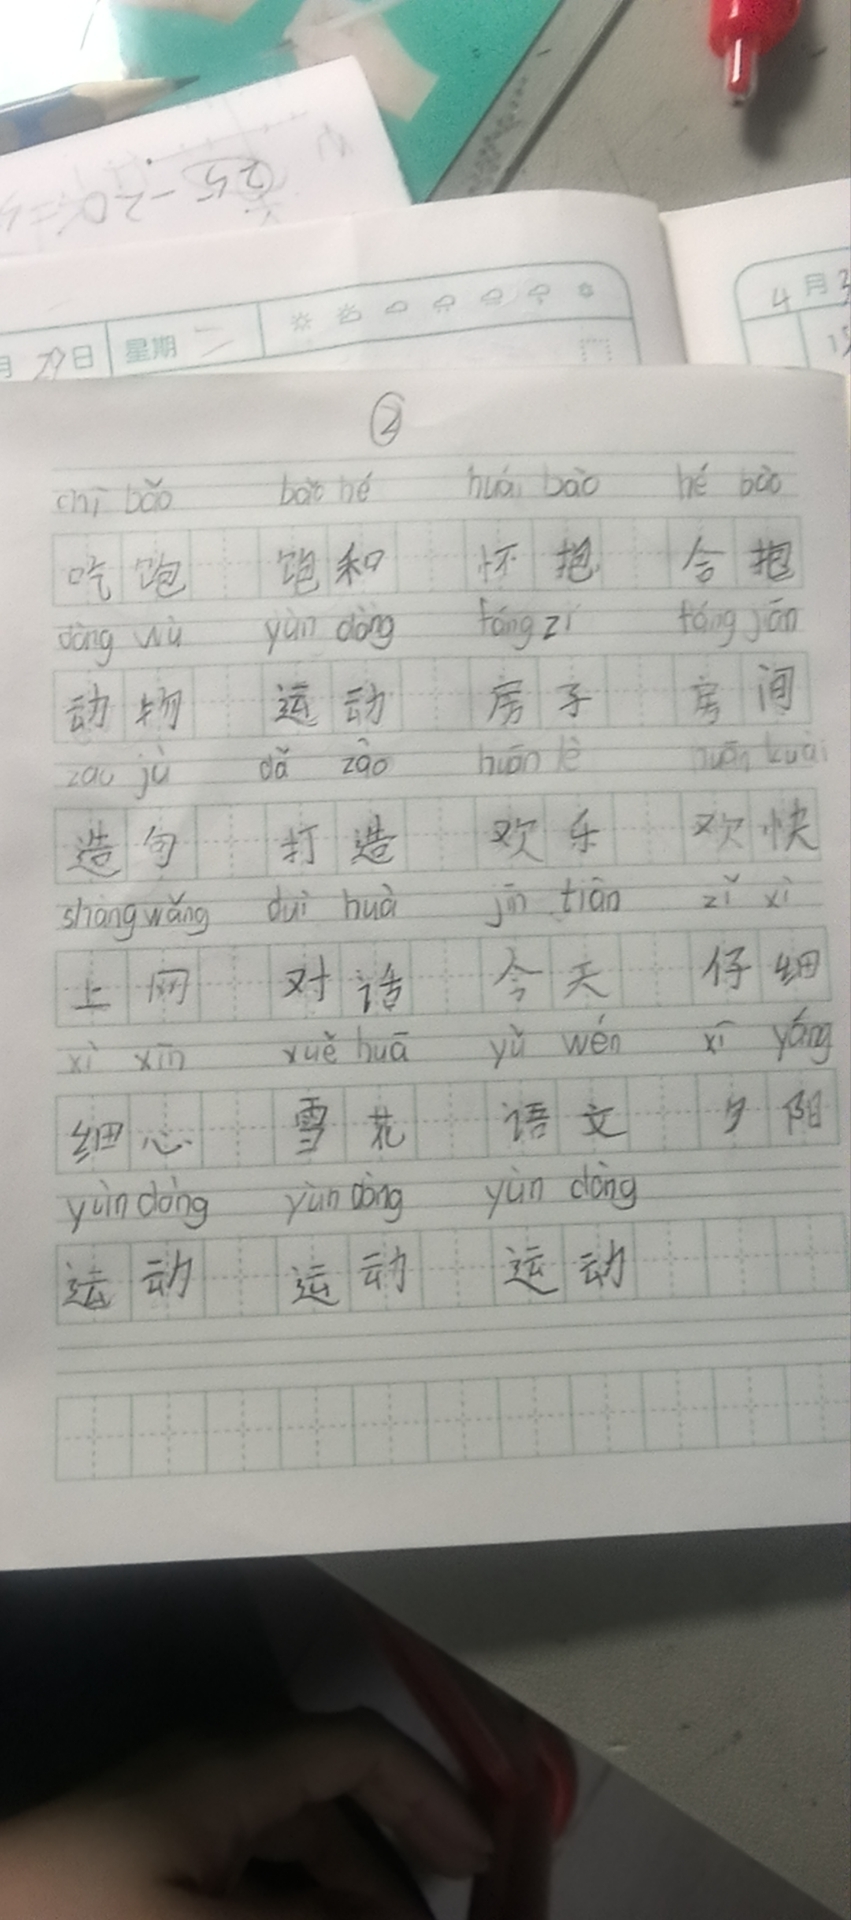 25-20=5
月29日 星期二
4月3
15
②
chī bǎo bǎo hé huái bào hé bào
吃饱 饱和 怀抱 合抱
dòng wù yùn dòng fáng zi fáng jiān
动物 运动 房子 房间
zào jù dǎ zào huān lè huān kuài
造句 打造 欢乐 欢快
shàng wǎng duì huà jīn tiān zǐ xì
上网 对话 今天 仔细
xì xīn xuě huā yǔ wén xī yáng
细心 雪花 语文 夕阳
yùn dòng yùn dòng yùn dòng
运动 运动 运动